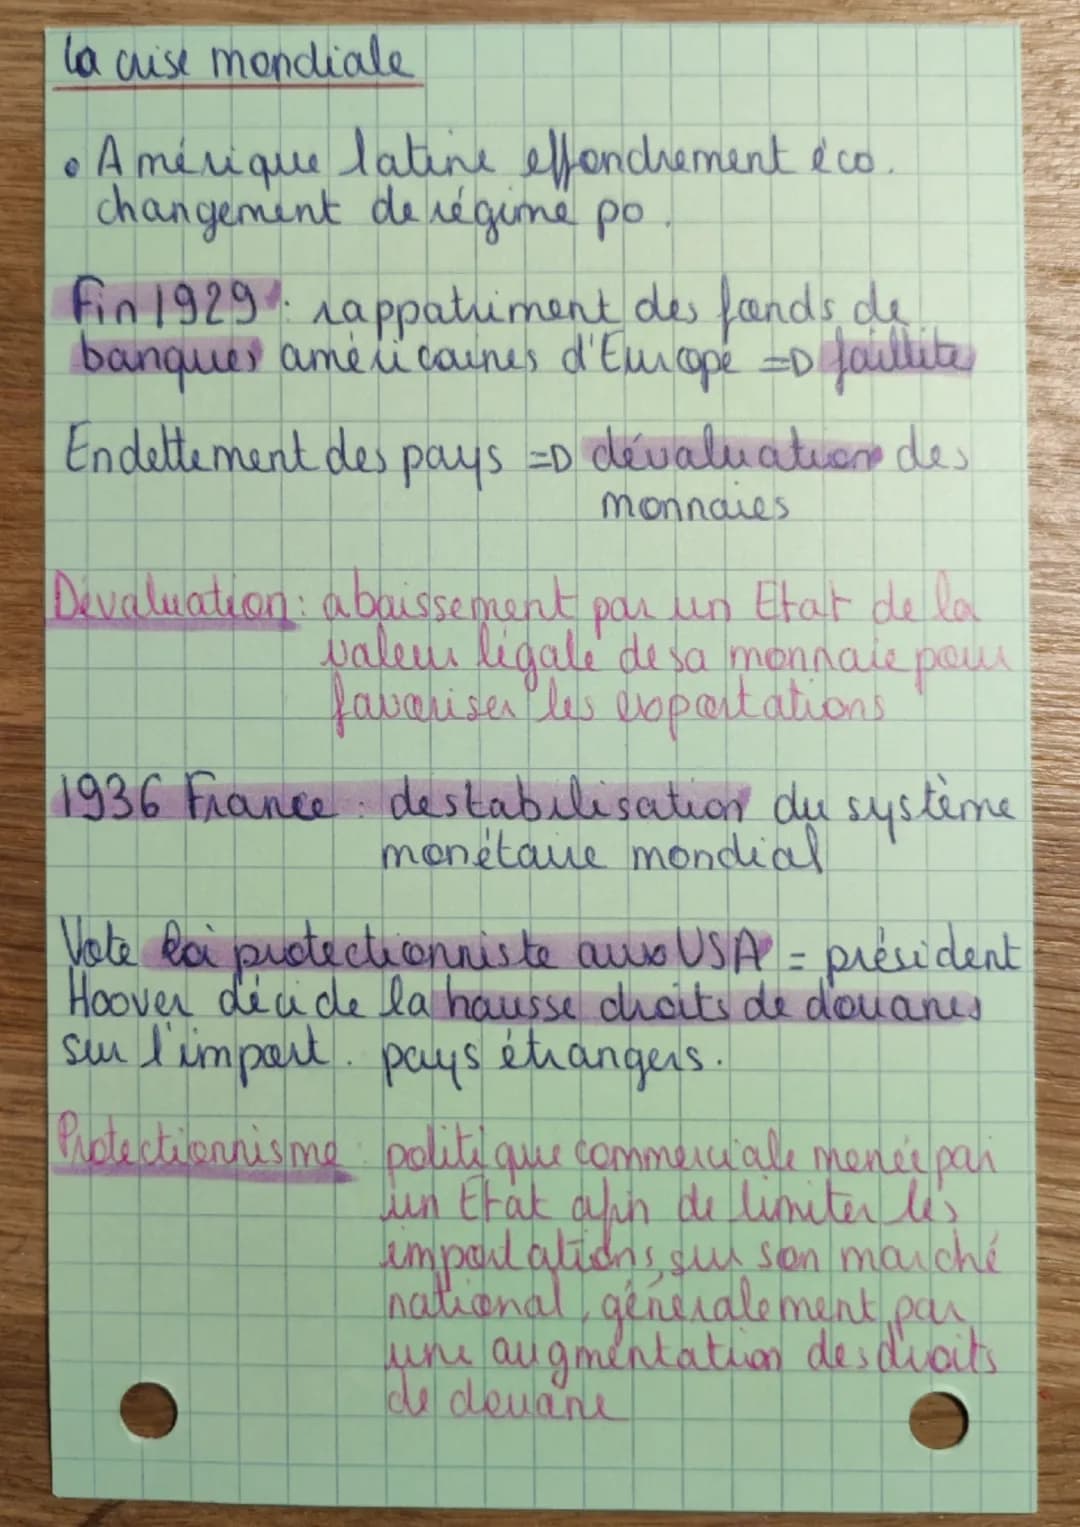 La crise mondiale
• Amérique latine effondrement éco.
changement de régime po.
Fin 1929 : rappatriment des fonds de
banques américaines d'Europe => faillite
Endettement des pays => dévaluation des
monnaies
Dévaluation : abaissement par un Etat de la
valeur légale de sa monnaie pour
favoriser les exportations
1936 France : destabilisation du système
monétaire mondial
Vote loi protectionniste aux USA = président
Hoover décide la hausse droits de douanes
sur l'import. pays étrangers.
Protectionnisme : politique commerciale menée par
un Etat afin de limiter les
importations sur son marché
national, généralement par
une augmentation des droits
de douane